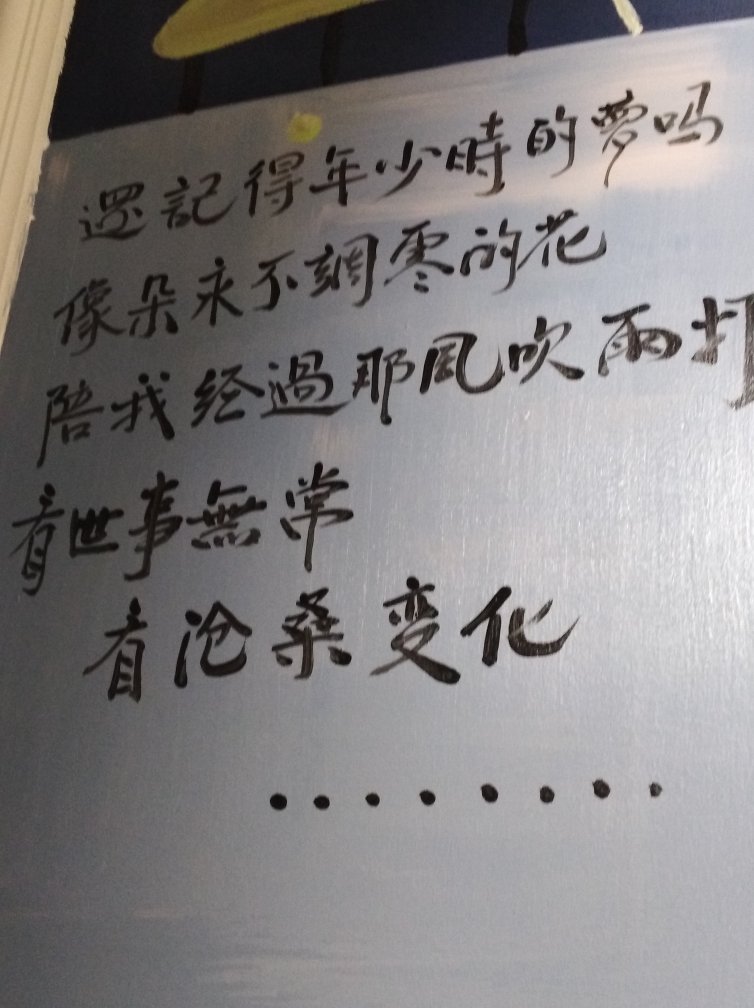 還記得年少時的夢吗
像朵永不凋零的花
陪我经過那風吹雨打
看世事無常
看沧桑变化
........